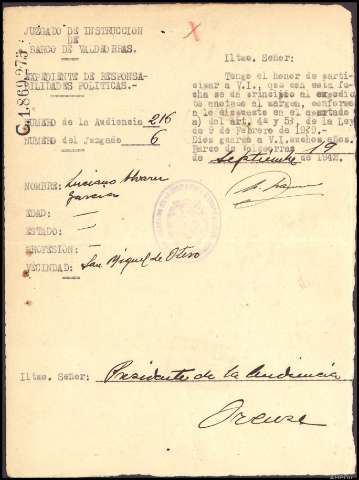 JUZGADO DE INSTRUCCION
DE
BARCO DE VALDEORRAS.
EXPEDIENTE DE RESPONSA-
BILIDADES POLITICAS.-
NUMERO de la Audiencia 216
NUMERO del Juzgado 6
C-1.869-275
Iltmo. Señor:
Tengo el honor de parti-
cipar a V.I., que con esta fe-
cha se da principio al expedien-
te anotado al margen, conforme
a lo dispuesto en el apartado
a) del art. 4 y 54, de la Ley
de 9 de Febrero de 1939.-
Dios guarde a V.I. muchos años.
Barco de Valdeorras 19
de septiembre de 1942.
NOMBRE: Luciano Alvarez
Garcia
EDAD: —
ESTADO: —
PROFESION: —
VECINDAD: San Miguel de Otero
Iltmo. Señor: Presidente de la Audiencia
Orense